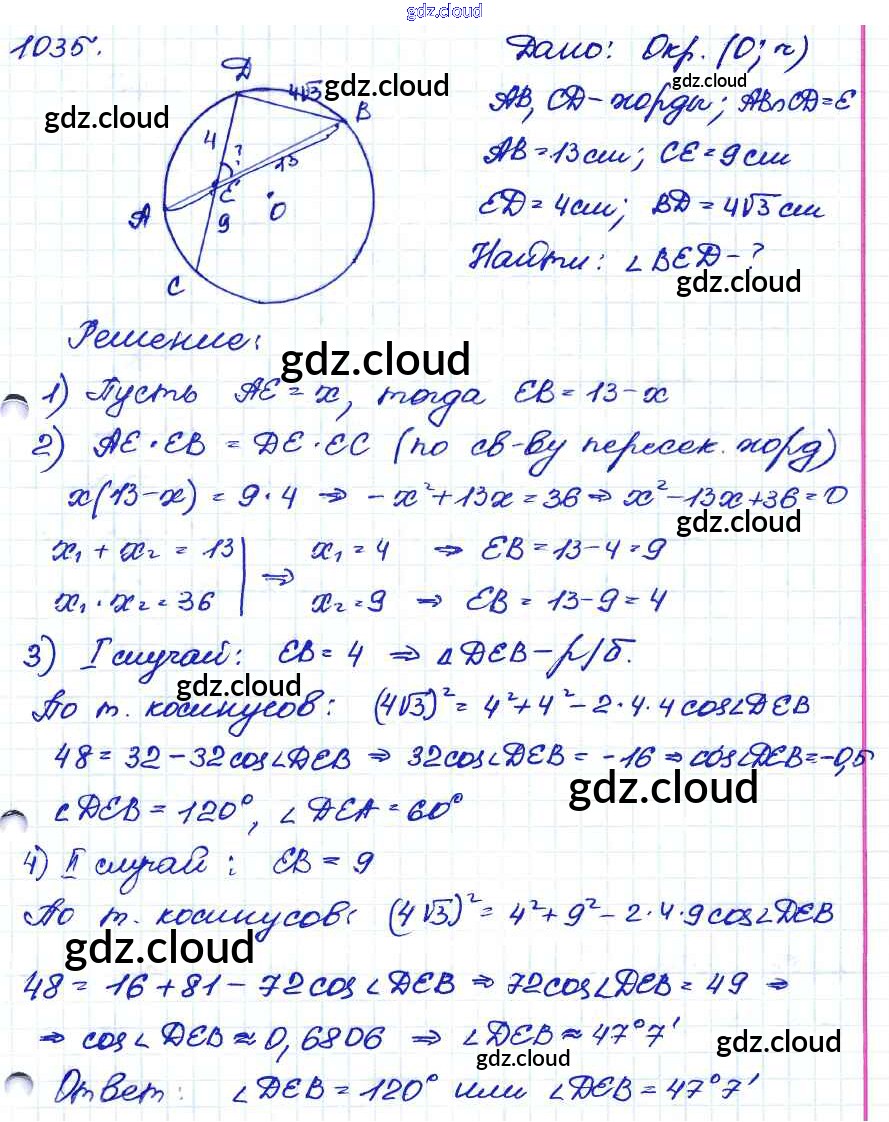 gdz.cloud
1035.
Дано: Окр. (O; r)
AB, CD - хорды; AB∩CD = E
AB = 13 см; CE = 9 см
ED = 4 см; BD = 4√3 см
Найти: ∠BED - ?
D
4√3
B
4
?
13
E
A
9
O
C
gdz.cloud
gdz.cloud
gdz.cloud
gdz.cloud
Решение:
gdz.cloud
1) Пусть AE = x, тогда EB = 13 - x
2) AE · EB = DE · EC (по св-ву пересек. хорд)
x(13 - x) = 9 · 4 ⇒ -x² + 13x = 36 ⇒ x² - 13x + 36 = 0
gdz.cloud
x₁ + x₂ = 13 | ⇒ x₁ = 4 ⇒ EB = 13 - 4 = 9
x₁ · x₂ = 36 | x₂ = 9 ⇒ EB = 13 - 9 = 4
3) I случай: EB = 4 ⇒ △DEB - р/б.
gdz.cloud
По т. косинусов: (4√3)² = 4² + 4² - 2 · 4 · 4 cos∠DEB
48 = 32 - 32 cos∠DEB ⇒ 32 cos∠DEB = -16 ⇒ cos∠DEB = -0,5
gdz.cloud
∠DEB = 120°, ∠DEA = 60°
4) II случай: EB = 9
По т. косинусов: (4√3)² = 4² + 9² - 2 · 4 · 9 cos∠DEB
gdz.cloud
48 = 16 + 81 - 72 cos∠DEB ⇒ 72 cos∠DEB = 49 ⇒
⇒ cos∠DEB ≈ 0,6806 ⇒ ∠DEB ≈ 47°7′
gdz.cloud
gdz.cloud
Ответ: ∠DEB = 120° или ∠DEB = 47°7′